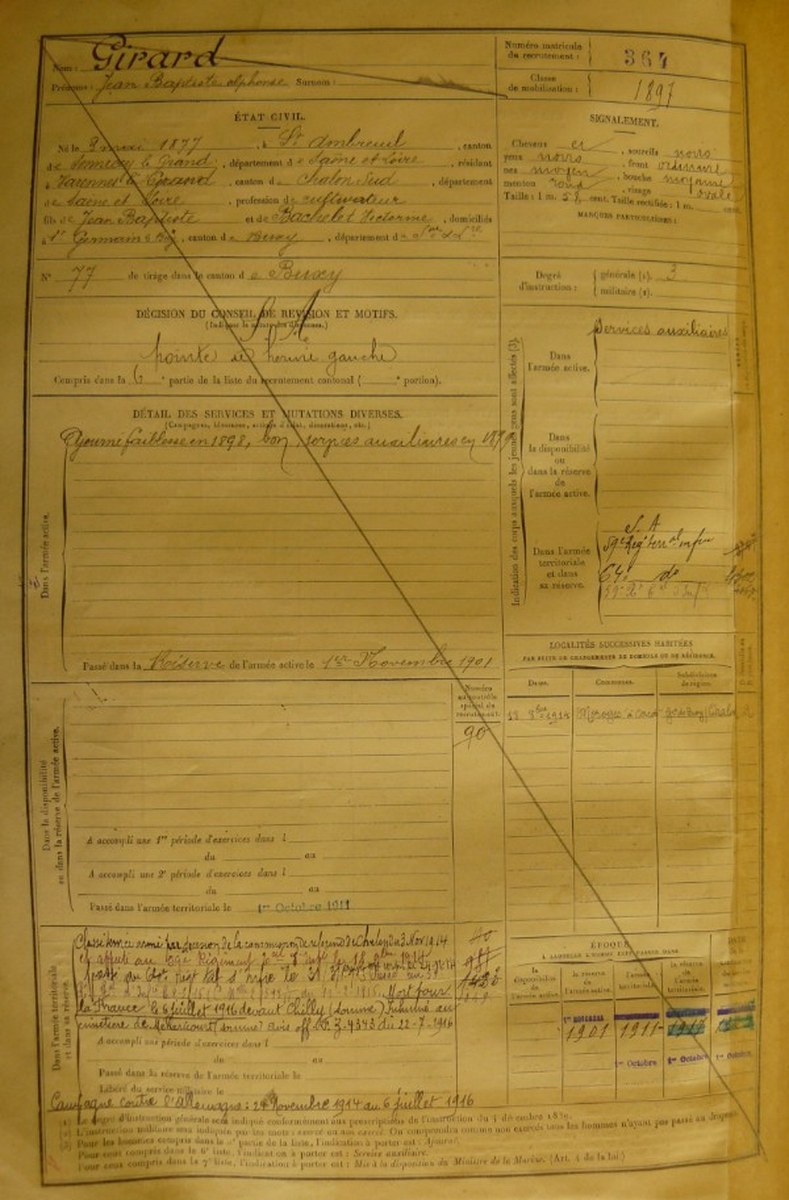 Nom : Girard
Prénoms : Jean Baptiste Alphonse Surnom :
Numéro matricule du recrutement : 364
Classe de mobilisation : 1897
ÉTAT CIVIL.
Né le 3 mai 1877, à St Ambreuil, canton
de Sennecey le Grand, département de Saône et Loire, résidant
à Varennes le Grand, canton de Chalon Sud, département
de Saône et Loire, profession de cultivateur
fils de Jean Baptiste et de Bachelet Victorine, domiciliés
à St Germain, canton de Buxy, département de
N° 77 de tirage dans le canton de Buxy
SIGNALEMENT.
Cheveux et sourcils noirs
yeux noirs, front ordinaire
nez moyen, bouche moyenne
menton rond, visage ovale
Taille : 1 m. 58 cent. Taille rectifiée : 1 m. cent.
MARQUES PARTICULIÈRES :
Degré d'instruction : générale (1). 3
militaire (2).
DÉCISION DU CONSEIL DE REVISION ET MOTIFS.
S.A
pointe de hernie gauche
Compris dans la 6e partie de la liste du recrutement cantonal ( e portion).
DÉTAIL DES SERVICES ET MUTATIONS DIVERSES.
(Campagnes, blessures, actions d'éclat, décorations, etc.)
Ajourné faiblesse en 1898, bon services auxiliaires en
Dans l'armée active.
Passé dans la Réserve de l'armée active le 1er Novembre 1901
Indication des corps auxquels les jeunes gens sont affectés (3).
Dans l'armée active.
Services auxiliaires
Dans la disponibilité ou dans la réserve de l'armée active.
Dans l'armée territoriale et dans sa réserve.
S. A
59e Rég. terr. al infie
64e do
LOCALITÉS SUCCESSIVES HABITÉES
PAR SUITE DE CHANGEMENTS DE DOMICILE OU DE RÉSIDENCE.
Dates. Communes. Subdivisions de région.
Numéro au contrôle spécial du recrutement.
90
Dans la disponibilité et dans la réserve de l'armée active.
A accompli une 1re période d'exercices dans l
du au
A accompli une 2e période d'exercices dans l
du au
Passé dans l'armée territoriale le 1er Octobre 1911
Dans l'armée territoriale et dans sa réserve.
Classé service armé par décision de la commission de réforme de Chalon du 3 Nov 1914
Mort pour
la France le 6 juillet 1916 devant Chilly (Somme) Inhumé au
cimetière de Méharicourt (Somme) avis off. No Z. 4343 du 22-7-1916
A accompli une période d'exercices dans l
du au
Passé dans la réserve de l'armée territoriale le
Libéré du service militaire le
Campagne contre l'Allemagne : 24 Novembre 1914 au 6 juillet 1916
ÉPOQUE
À LAQUELLE L'HOMME DOIT PASSER DANS
la disponibilité de l'armée active. la réserve de l'armée active. l'armée territoriale. la réserve de l'armée territoriale.
1er NOVEMBRE
1901 1911
1er Octobre 1er Octobre 1er Octobre
(1) Le degré d'instruction générale sera indiqué conformément aux prescriptions de l'instruction du 4 décembre 1889.
Pour ceux compris dans la 6e liste, l'indication à porter est : Service auxiliaire.
Pour ceux compris dans la 7e liste, l'indication à porter est : Mis à la disposition du Ministre de la Marine. (Art. 4 de la loi.)